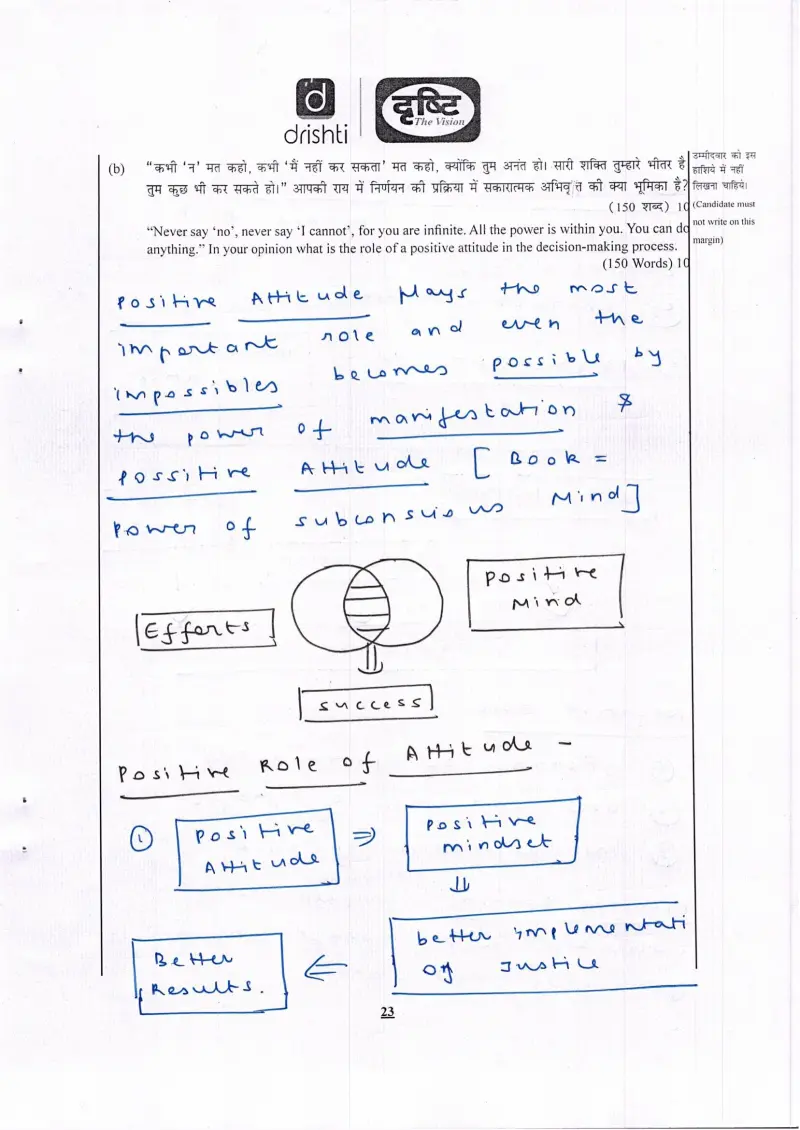 drishti
दृष्टि
The Vision
(b) “कभी ‘न’ मत कहो, कभी ‘मैं नहीं कर सकता’ मत कहो, क्योंकि तुम अनंत हो। सारी शक्ति तुम्हारे भीतर है
तुम कुछ भी कर सकते हो।” आपकी राय में निर्णयन की प्रक्रिया में सकारात्मक अभिवृत्त की क्या भूमिका है?
(150 शब्द) 10
“Never say ‘no’, never say ‘I cannot’, for you are infinite. All the power is within you. You can do
anything.” In your opinion what is the role of a positive attitude in the decision-making process.
(150 Words) 10
उम्मीदवार को इस
हाशिये में नहीं
लिखना चाहिये।
(Candidate must
not write on this
margin)
Positive Attitude plays the most
important role and even the
impossibles becomes possible by
the power of manifestation &
possitive Attitude [Book =
Power of subconsious Mind]
Efforts
Positive
Mind
success
Positive Role of Attitude -
1 Positive
Attitude
⇒
Positive
mindset
⇓
better implementati
of Justice
⇐
Better
Results.
23